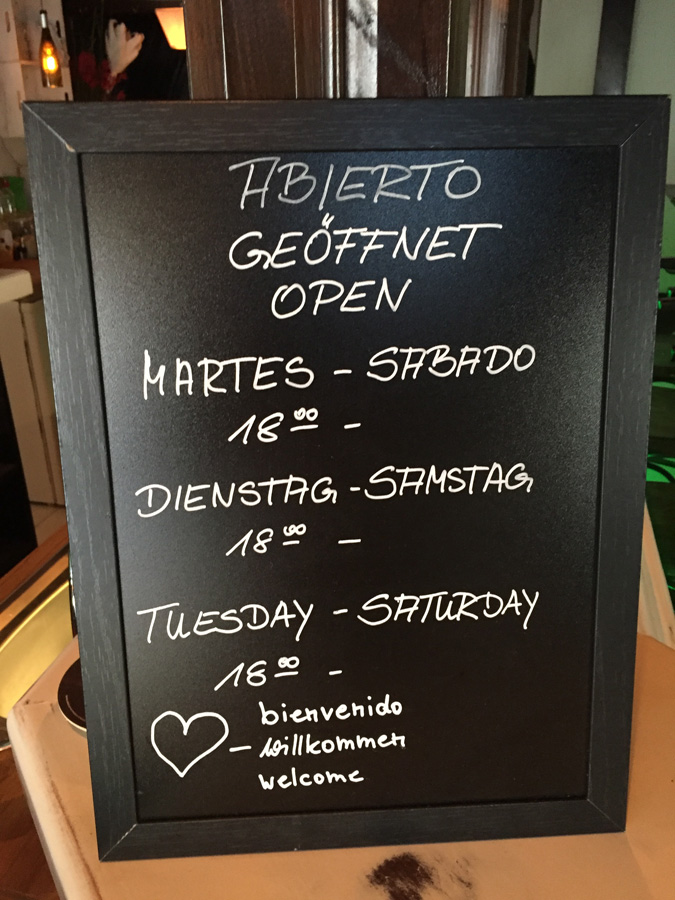 ABIERTO
GEÖFFNET
OPEN
MARTES - SABADO
18⁰⁰ -
DIENSTAG - SAMSTAG
18⁰⁰ -
TUESDAY - SATURDAY
18⁰⁰ -
bienvenido
- willkommen
welcome